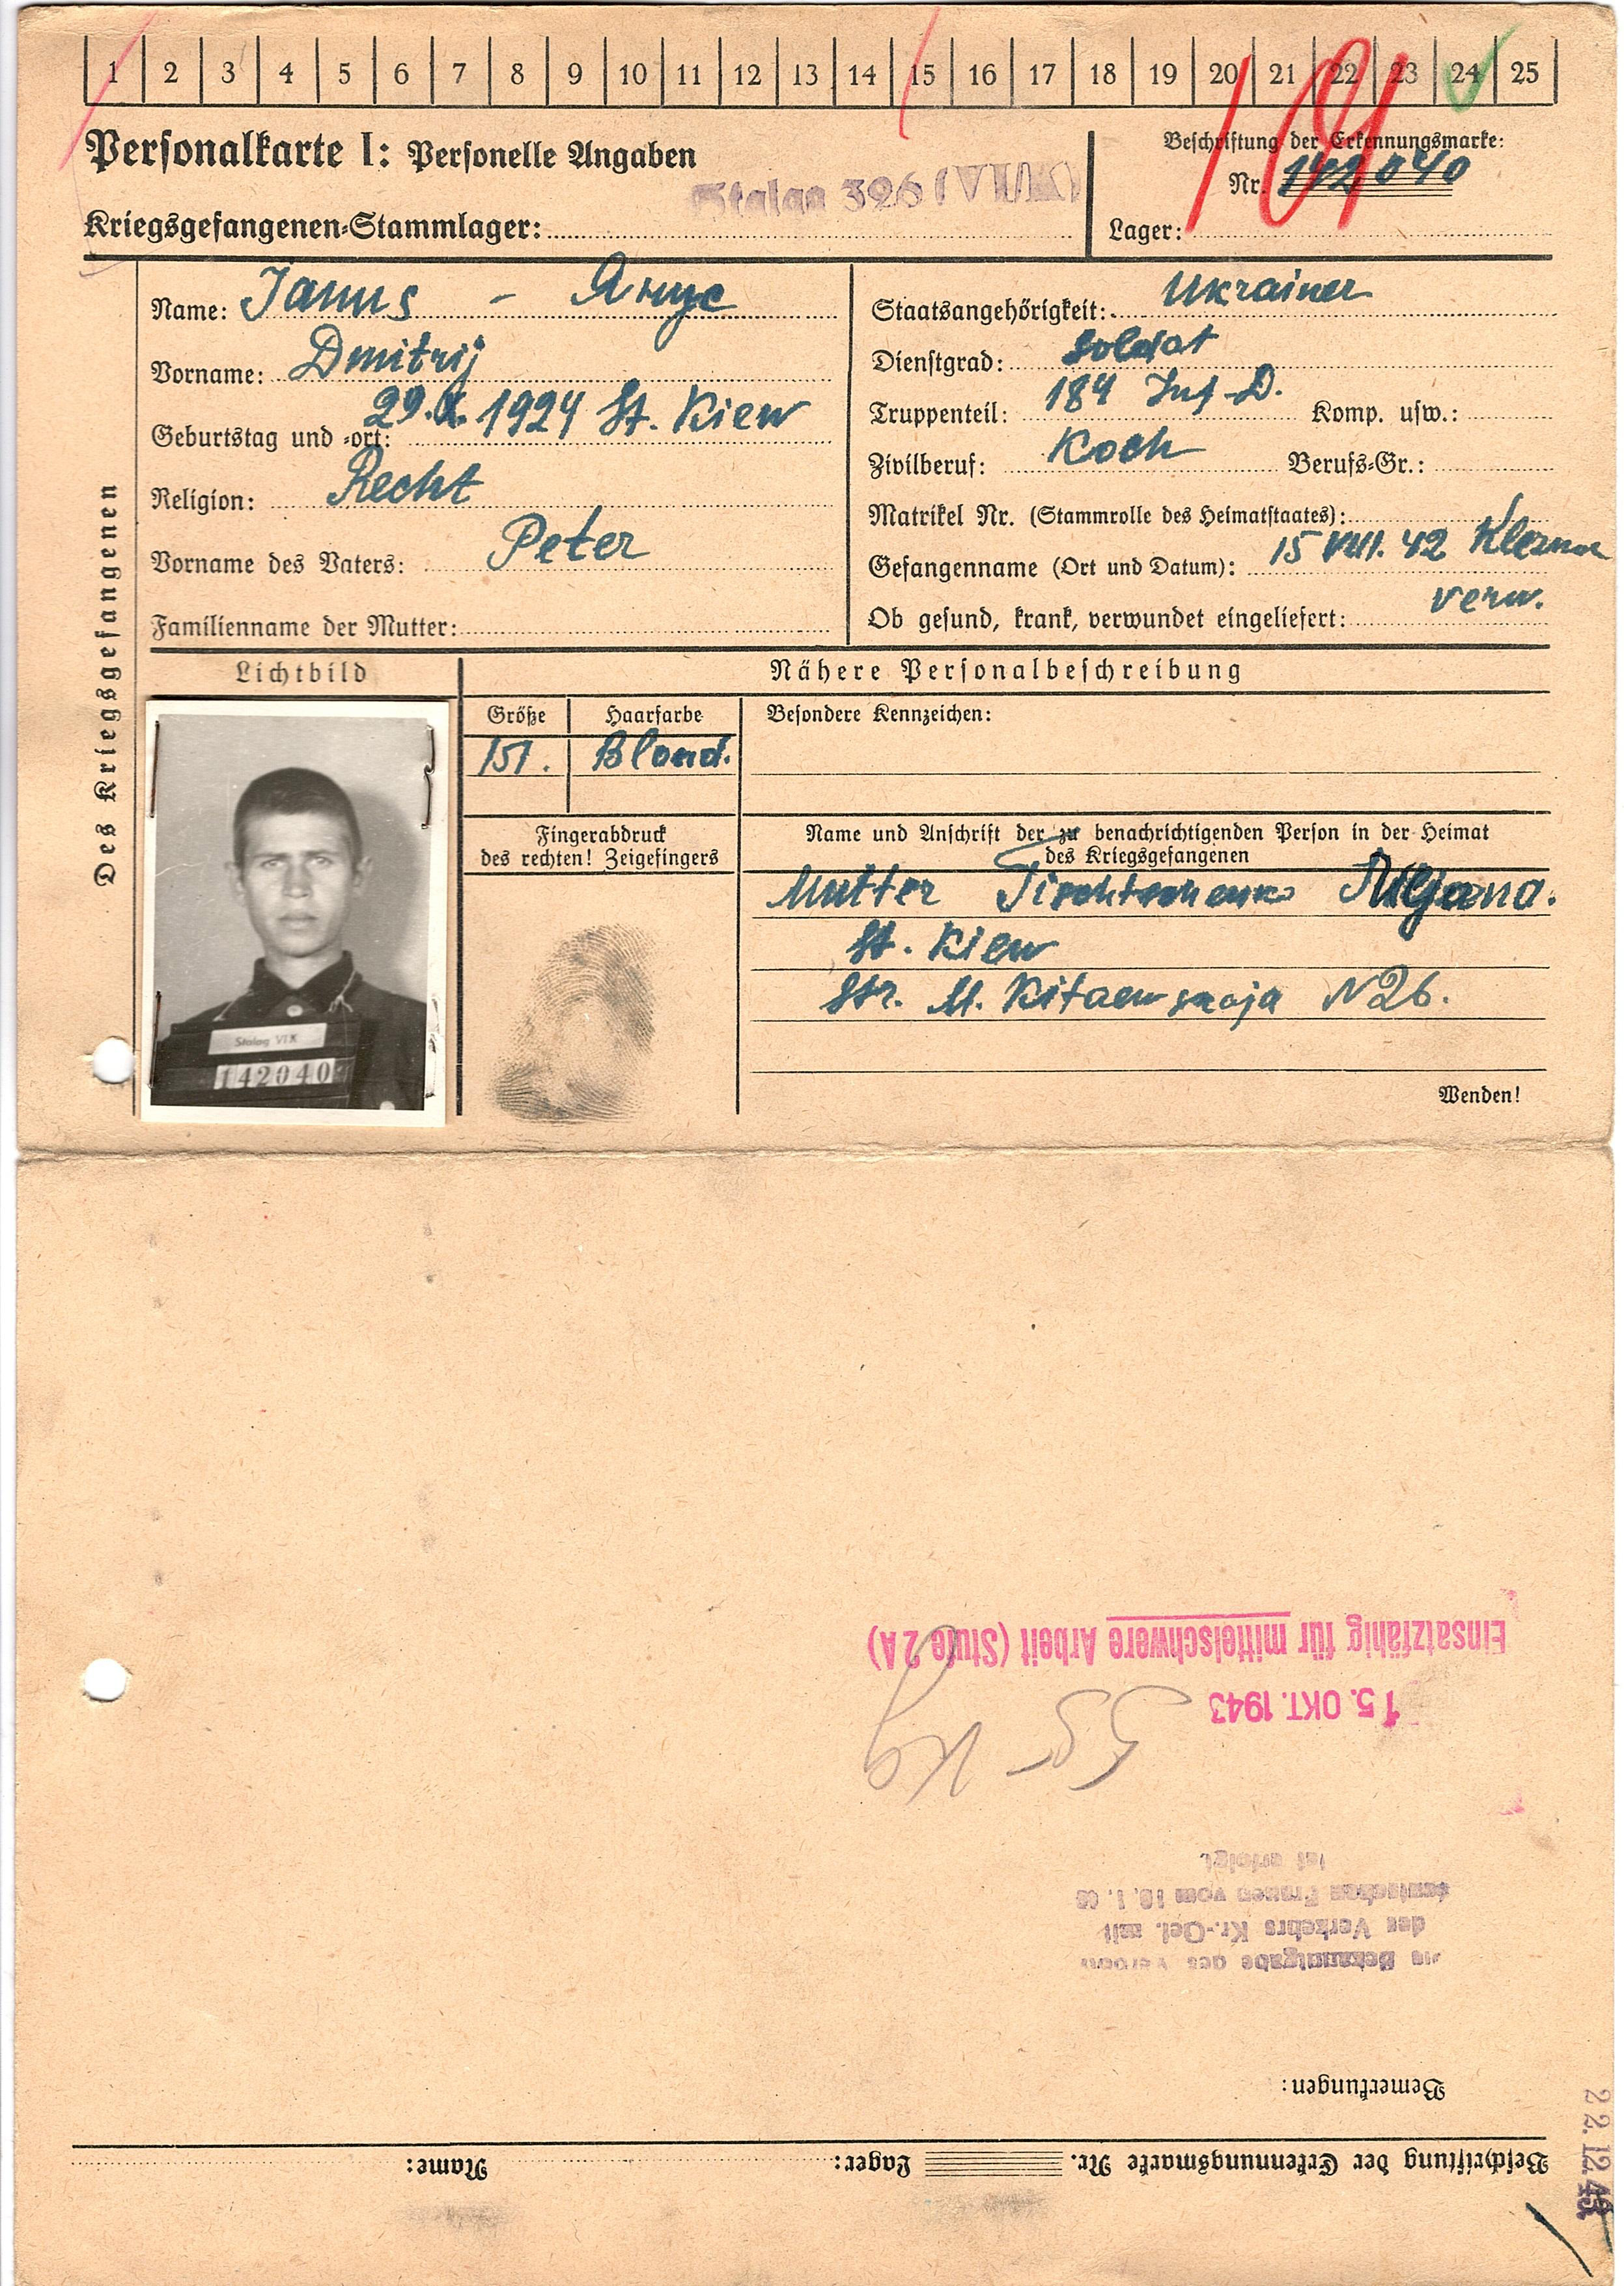 1 2 3 4 5 6 7 8 9 10 11 12 13 14 15 16 17 18 19 20 21 22 23 24 25
Personalkarte I: Personelle Angaben
Stalag 326 (VI K)
Kriegsgefangenen-Stammlager:
Beschriftung der Erkennungsmarke:
Nr. 142040
Lager:
Des Kriegsgefangenen
Name: Janus - Янус
Vorname: Dmitrij
Geburtstag und -ort: 29. 1924 St. Kiew
Religion: Recht
Vorname des Vaters: Peter
Familienname der Mutter:
Staatsangehörigkeit: Ukrainer
Dienstgrad: Soldat
Truppenteil: 184 Inf-D. Komp. usw.:
Zivilberuf: Koch Berufs-Gr.:
Matrikel Nr. (Stammrolle des Heimatstaates):
Gefangenname (Ort und Datum): 15 VIII. 42
Ob gesund, krank, verwundet eingeliefert: verw.
Lichtbild
Nähere Personalbeschreibung
Größe Haarfarbe Besondere Kennzeichen:
151. Blond.
Fingerabdruck
des rechten! Zeigefingers
Name und Anschrift der zu benachrichtigenden Person in der Heimat
des Kriegsgefangenen
Mutter Tischtschenko
St. Kiew
Str. M. Kitaewskaja N26.
Stalag VI K
142040
Wenden!
Einsatzfähig für mittelschwere Arbeit (Stufe 2A)
15. OKT. 1943
55 - Kg
Bekanntgabe des
des Verkehrs Kr.-Gef. mit
deutschen Frauen vom 10. 1.
ist erfolgt.
Bemerkungen:
22.12.43
Beschriftung der Erkennungsmarke Nr. Lager: Name: